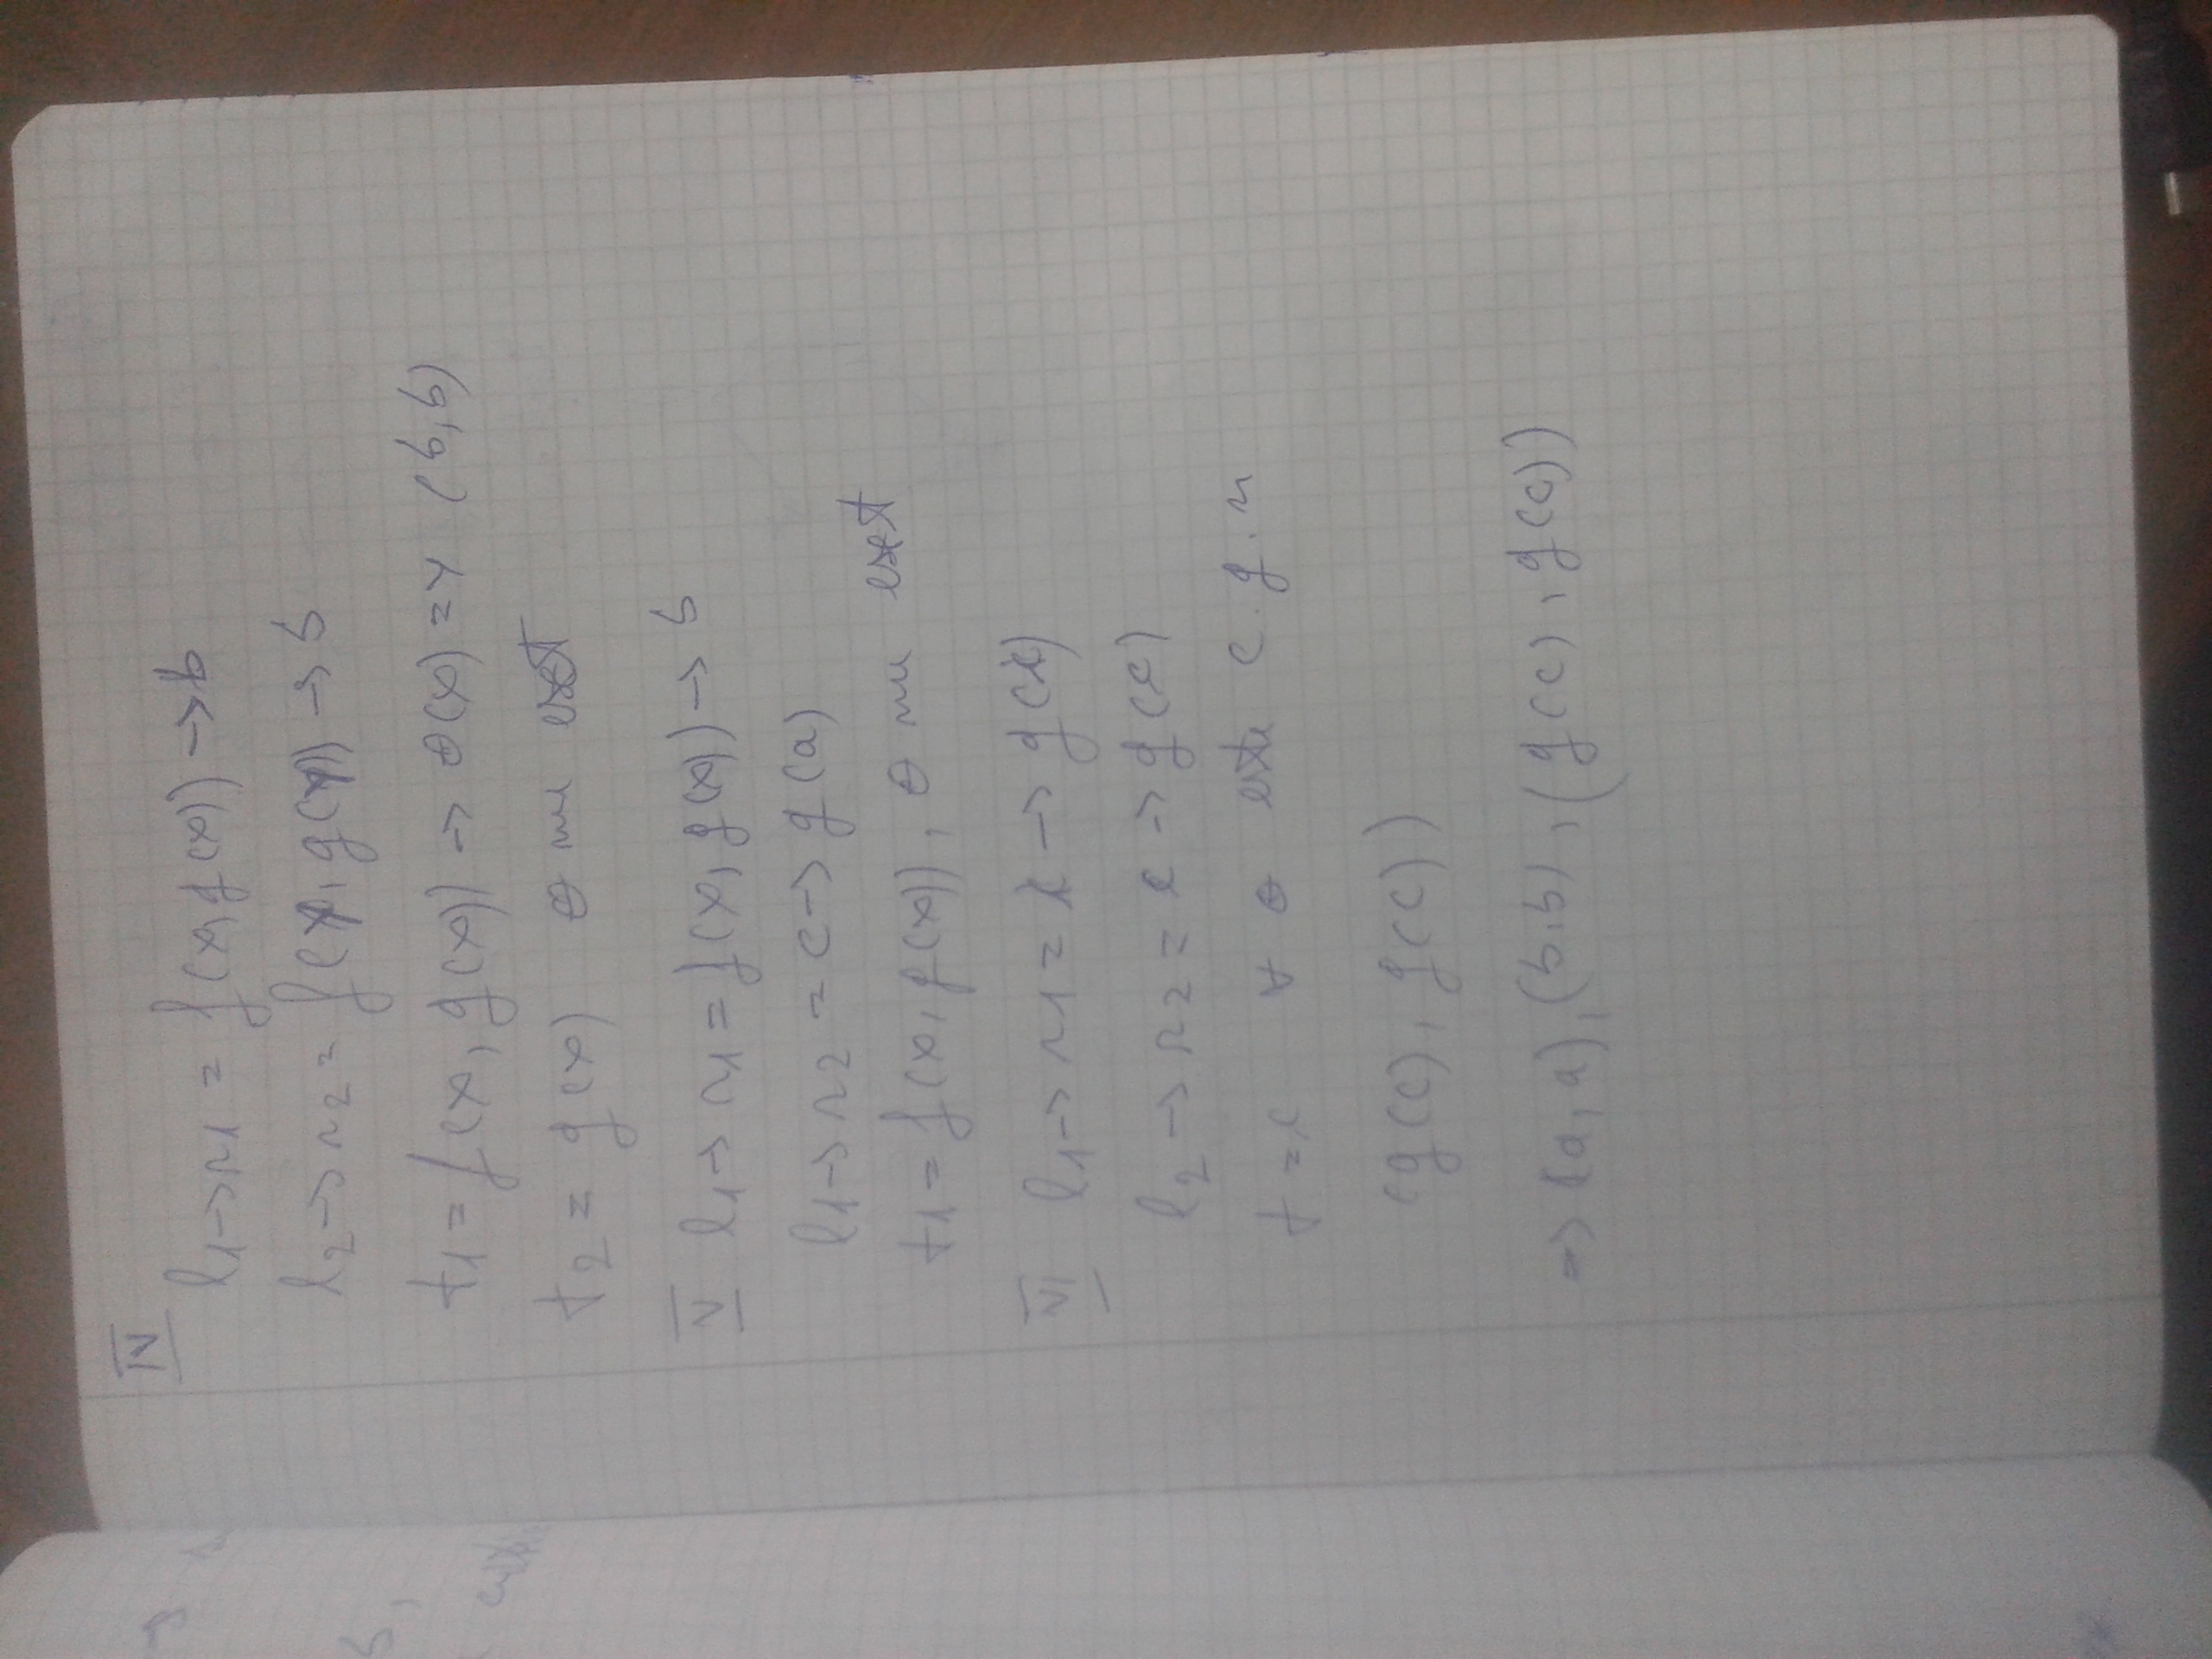 IV
l1→r1 = f(x, g(x)) → b
l2→r2 = f(y, g(y)) → b
t1 = f(x, g(x)) → θ(x) = y (b, b)
t2 = g(x) θ nu exist
V l1→r1 = f(x, g(x)) → b
l1→r2 = c → g(a)
t1 = f(x, g(x)), θ nu exist
VI l1→r1 = c → g(c)
l2→r2 = c → g(c)
t = c ∀ θ este c.g.u
(g(c), g(c))
⇒ (a, a), (b, b), (g(c), g(c))